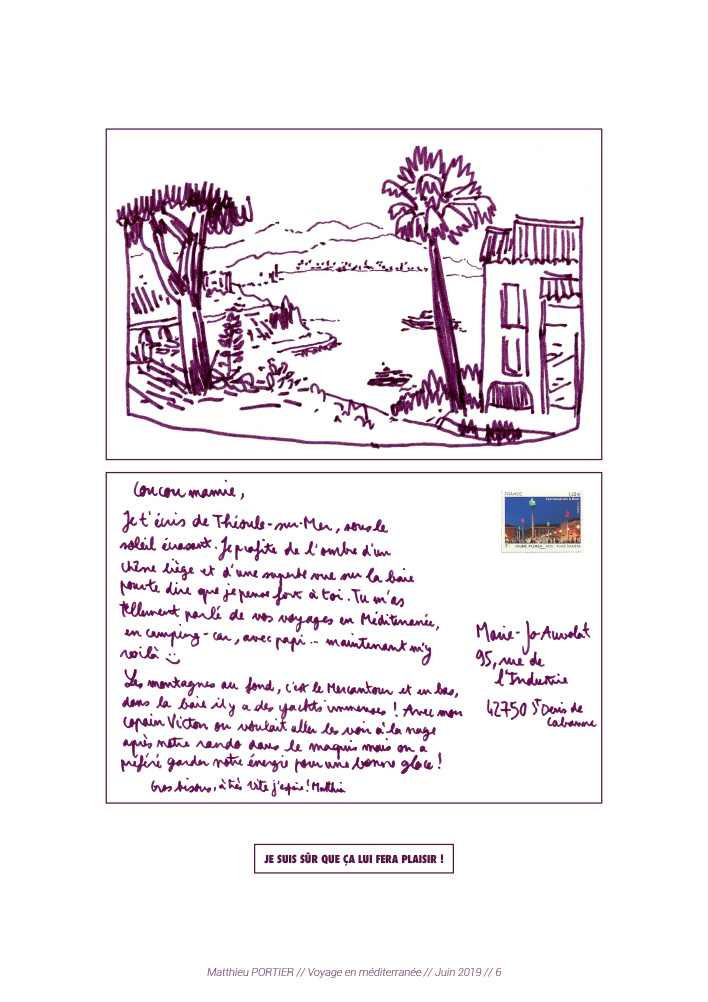 Coucou mamie,
Je t'écris de Théoule-sur-Mer, sous le
soleil écrasant. Je profite de l'ombre d'un
chêne liège et d'une superbe vue sur la baie
pour te dire que je pense fort à toi. Tu m'as
tellement parlé de vos voyages en Méditerranée,
en camping-car, avec papi... maintenant m'y
voilà :)
Les montagnes au fond, c'est le Mercantour et en bas,
dans la baie il y a des yachts immenses ! Avec mon
copain Victor on voulait aller les voir à la nage
après notre rando dans le maquis mais on a
préféré garder notre énergie pour une bonne glace !
Gros bisous, à très vite j'espère ! Matthieu
FRANCE 1,40€
JAUME PLENSA_ NICE - PLACE MASSÉNA
Marie-Jo Auvolat
95, rue de
l'Industrie
42750 St Denis de
Cabanne
JE SUIS SÛR QUE ÇA LUI FERA PLAISIR !
Matthieu PORTIER // Voyage en méditerranée // Juin 2019 // 6